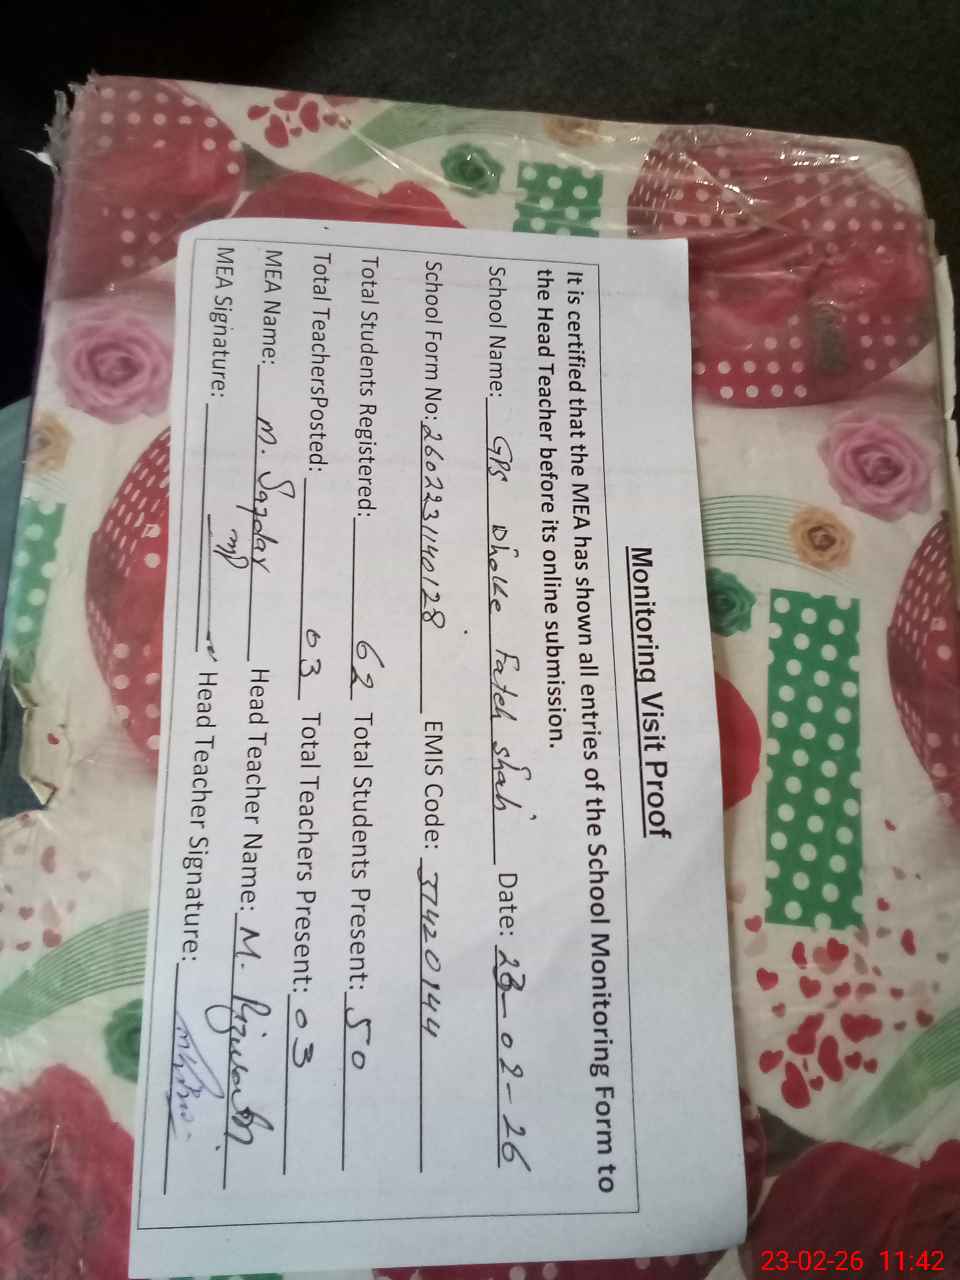 Monitoring Visit Proof
It is certified that the MEA has shown all entries of the School Monitoring Form to
the Head Teacher before its online submission.
School Name: GPS Dholke Fateh Shah Date: 23-02-26
School Form No: 2602231140128 EMIS Code: 37420144
Total Students Registered: 62 Total Students Present: 50
Total TeachersPosted: 03 Total Teachers Present: 03
MEA Name: M. Safdar Head Teacher Name: M.
MEA Signature: Head Teacher Signature:
23-02-26 11:42